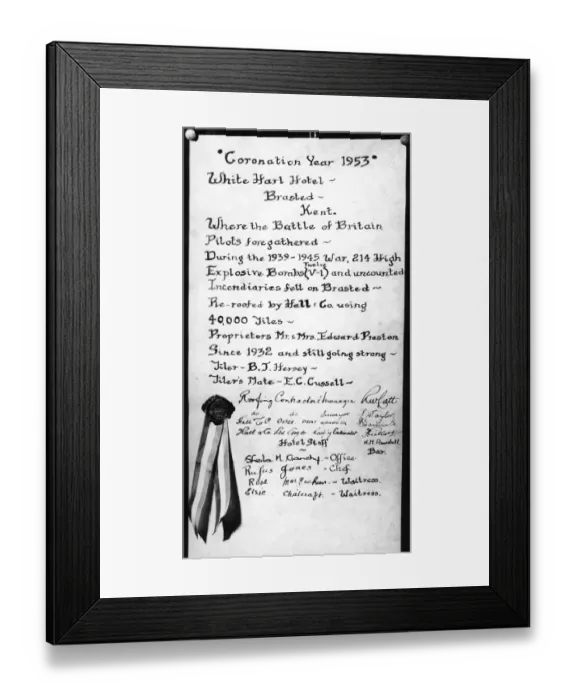 "Coronation Year 1953"
White Hart Hotel ~
Brasted ~
Kent.
Where the Battle of Britain
Pilots foregathered ~
During the 1939-1945 War, 214 High
Twelve
Explosive Bombs (V-1) and uncounted
Incendiaries fell on Brasted ~
Re-roofed by Hall & Co. using
40,000 Tiles ~
Proprietors Mr. & Mrs. Edward Preston
Since 1932 and still going strong ~
Tiler - B.J. Hersey ~
Tiler's Mate - E.C. Cussell ~
Roofing Contracts Manager
Hotel Staff
Bar.
Sheila M. - Office
Rufus Jones - Chef.
Rose - Waitress.
Elsie Chalcraft. - Waitress.